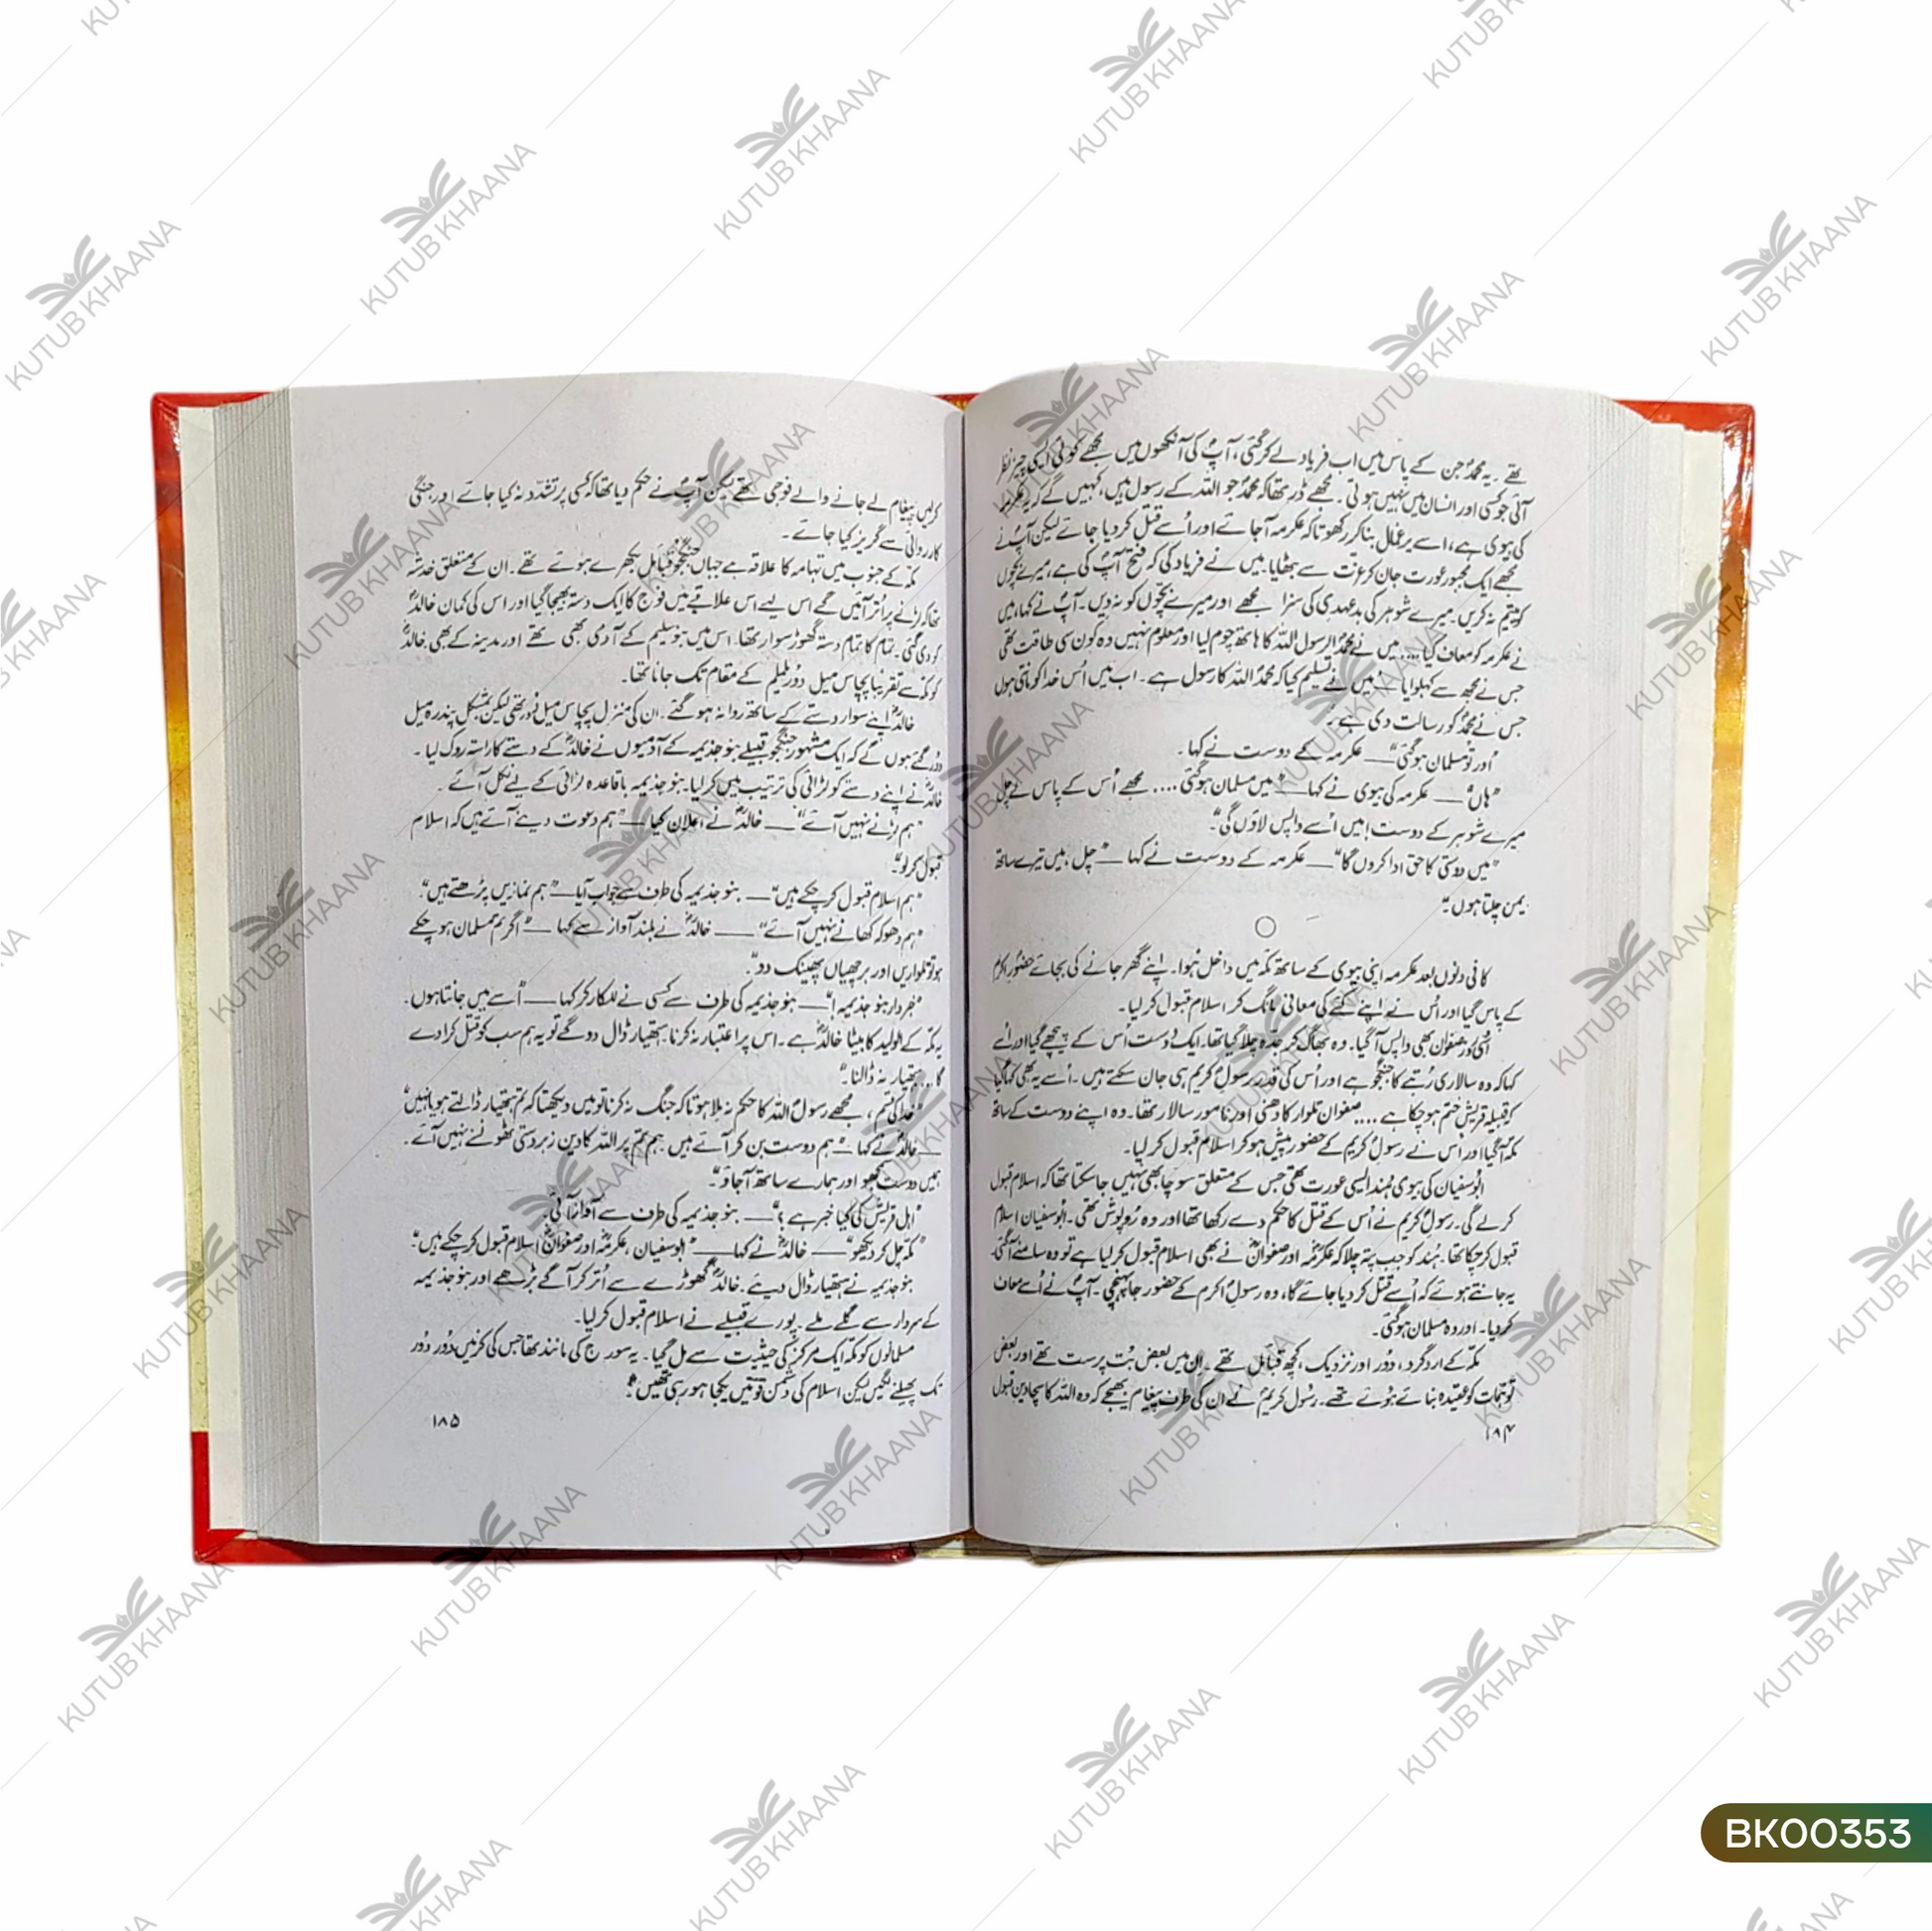 تھے ۔ یہ محمدؐ جن کے پاس میں اب فریاد لے کر گئی ، آپؐ کی آنکھوں میں مجھے کوئی ایسی چیز نظر
آئی جو کسی اور انسان میں نہیں ہوتی ۔ مجھے ڈر تھا کہ محمدؐ جو اللہ کے رسول ہیں ، کہیں گے کہ یہ عکرمہ
کی بیوی ہے ، اسے یرغمال بنا کر رکھو تاکہ عکرمہ آ جائے اور اُسے قتل کر دیا جائے لیکن آپؐ نے
مجھے ایک مجبور عورت جان کر عزت سے بٹھایا ۔ میں نے فریاد کی کہ فتح آپؐ کی ہے ، میرے بچوں
کو یتیم نہ کریں ۔ میرے شوہر کی بدعہدی کی سزا مجھے اور میرے بچوں کو نہ دیں ۔ آپؐ نے کہا ، میں
نے عکرمہ کو معاف کیا .... میں نے محمدؐ الرسول اللہ کا ہاتھ چوم لیا اور معلوم نہیں وہ کون سی طاقت تھی
جس نے مجھ سے کہلوایا — میں نے تسلیم کیا کہ محمدؐ اللہ کا رسول ہے ۔ اب میں اُس خدا کو مانتی ہوں
جس نے محمدؐ کو رسالت دی ہے“۔
”اور تُو مسلمان ہو گئی“ — عکرمہ کے دوست نے کہا ۔
”ہاں“ — عکرمہ کی بیوی نے کہا — ”میں مسلمان ہو گئی .... مجھے اُس کے پاس لے چل
میرے شوہر کے دوست ! میں اُسے واپس لاؤں گی“۔
”میں دوستی کا حق ادا کروں گا“ — عکرمہ کے دوست نے کہا — ”چل ، میں تیرے ساتھ
یمن چلتا ہوں“۔
کافی دنوں بعد عکرمہ اپنی بیوی کے ساتھ مکّہ میں داخل ہُوا ۔ اپنے گھر جانے کی بجائے حضورؐ اکرم
کے پاس گیا اور اُس نے اپنے کئے کی معافی مانگ کر اسلام قبول کر لیا ۔
اُسی روز صفوان بھی واپس آ گیا ۔ وہ بھاگ کر جدّہ چلا گیا تھا ۔ ایک دوست اُس کے پیچھے گیا اور اُسے
کہا کہ وہ سالاری رُتبے کا جنگجو ہے اور اُس کی قدر رسولِؐ کریم ہی جان سکتے ہیں ۔ اُسے یہ بھی کہا گیا
کہ قبیلہ قریش ختم ہو چکا ہے .... صفوان تلوار کا دھنی اور نامور سالار تھا ۔ وہ اپنے دوست کے ساتھ
مکّہ آ گیا اور اس نے رسولِؐ کریم کے حضور پیش ہو کر اسلام قبول کر لیا ۔
ابُوسفیان کی بیوی ہند ایسی عورت تھی جس کے متعلق سوچا بھی نہیں جا سکتا تھا کہ اسلام قبول
کر لے گی ۔ رسولِؐ کریم نے اُس کے قتل کا حکم دے رکھا تھا اور وہ رُوپوش تھی ۔ ابُوسفیان اسلام
قبول کر چکا تھا ۔ ہند کو جب پتہ چلا کہ عکرمہؓ اور صفوانؓ نے بھی اسلام قبول کر لیا ہے تو وہ سامنے آ گئی
یہ جانتے ہوئے کہ اُسے قتل کر دیا جائے گا ، وہ رسولِؐ اکرم کے حضور جا پہنچی ۔ آپؐ نے اُسے معاف
کر دیا ۔ اور وہ مسلمان ہو گئی ۔
مکّہ کے اردگرد ، دُور اور نزدیک ، کچھ قبائل تھے ۔ ان میں بعض بُت پرست تھے اور بعض
توہّمات کو عقیدہ بنائے ہوئے تھے ۔ رسُولِؐ کریم نے ان کی طرف پیغام بھیجے کہ وہ اللہ کا سچا دین قبول
۱۸۴
کر لیں پیغام لے جانے والے فوجی تھے لیکن آپؐ نے حکم دیا تھا کہ کسی پر تشدّد نہ کیا جائے اور جنگی
کارروائی سے گریز کیا جائے ۔
مکّہ کے جنوب میں تہامہ کا علاقہ ہے جہاں جنگجو قبائل بکھرے ہوئے تھے ۔ ان کے متعلق خدشہ
تھا کہ لڑنے پر اُتر آئیں گے اس لیے اس علاقے میں فوج کا ایک دستہ بھیجا گیا اور اس کی کمان خالدؓ
کو دی گئی ۔ تمام کا تمام دستہ گھوڑ سوار تھا ۔ اس میں بنو سلیم کے آدمی بھی تھے اور مدینہ کے بھی ۔ خالدؓ
کو مکّہ سے تقریباً پچاس میل دُور یلملم کے مقام تک جانا تھا ۔
خالدؓ اپنے سوار دستے کے ساتھ روانہ ہو گئے ۔ ان کی منزل پچاس میل دُور تھی لیکن بمشکل پندرہ میل
دُور گئے ہوں گے کہ ایک مشہور جنگجو قبیلے بنو جذیمہ کے آدمیوں نے خالدؓ کے دستے کا راستہ روک لیا ۔
خالدؓ نے اپنے دستے کو لڑائی کی ترتیب میں کر لیا ۔ بنو جذیمہ باقاعدہ لڑائی کے لیے نکل آئے ۔
”ہم لڑنے نہیں آئے“ — خالدؓ نے اعلان کیا — ”ہم دعوت دینے آئے ہیں کہ اسلام
قبول کر لو“۔
”ہم اسلام قبول کر چکے ہیں“ — بنو جذیمہ کی طرف سے جواب آیا — ”ہم نمازیں پڑھتے ہیں“۔
”ہم دھوکہ کھانے نہیں آئے“ — خالدؓ نے بلند آواز سے کہا — ”اگر تم مسلمان ہو چکے
ہو تو تلواریں اور برچھیاں پھینک دو“۔
”خبردار بنو جذیمہ !“ — بنو جذیمہ کی طرف سے کسی نے للکار کر کہا — ”اُسے میں جانتا ہوں ۔
یہ مکّہ کے الولید کا بیٹا خالدؓ ہے ۔ اس پر اعتبار نہ کرنا ۔ ہتھیار ڈال دو گے تو یہ ہم سب کو قتل کرا دے
گا .... ہتھیار نہ ڈالنا“۔
”خدا کی قسم ، مجھے رسولؐ اللہ کا حکم نہ ملا ہوتا کہ جنگ نہ کرنا تو میں دیکھتا کہ تم ہتھیار ڈالتے ہو یا نہیں“
— خالدؓ نے کہا — ”ہم دوست بن کر آئے ہیں ۔ ہم تم پر اللہ کا دین زبردستی ٹھونسنے نہیں آئے ۔
ہمیں دوست سمجھو اور ہمارے ساتھ آ جاؤ“۔
”اہلِ قریش کی کیا خبر ہے ؟“ — بنو جذیمہ کی طرف سے آواز آئی ۔
”مکّہ چل کر دیکھو“ — خالدؓ نے کہا — ”ابوسفیان ، عکرمہؓ اور صفوانؓ اسلام قبول کر چکے ہیں“۔
بنو جذیمہ نے ہتھیار ڈال دیئے ۔ خالدؓ گھوڑے سے اُتر کر آگے بڑھے اور بنو جذیمہ
کے سردار سے گلے ملے ۔ پورے قبیلے نے اسلام قبول کر لیا ۔
مسلمانوں کو مکّہ ایک مرکز کی حیثیت سے مل گیا ۔ یہ سورج کی مانند تھا جس کی کرنیں دُور دُور
تک پھیلنے لگیں لیکن اسلام کی دشمن قوتیں یکجا ہو رہی تھیں ؟
۱۸۵
BK00353
KUTUB KHAANA